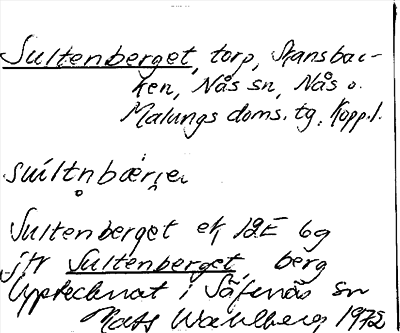 Sultenberget, torp, Skansbac-
ken, Nås sn, Nås o.
Malungs doms. tg, Kopp. l.
Sultenberget ek 12E 6g
jfr Sultenberget, berg
upptecknat i Säfsnäs sn
Mats Wahlberg 1972